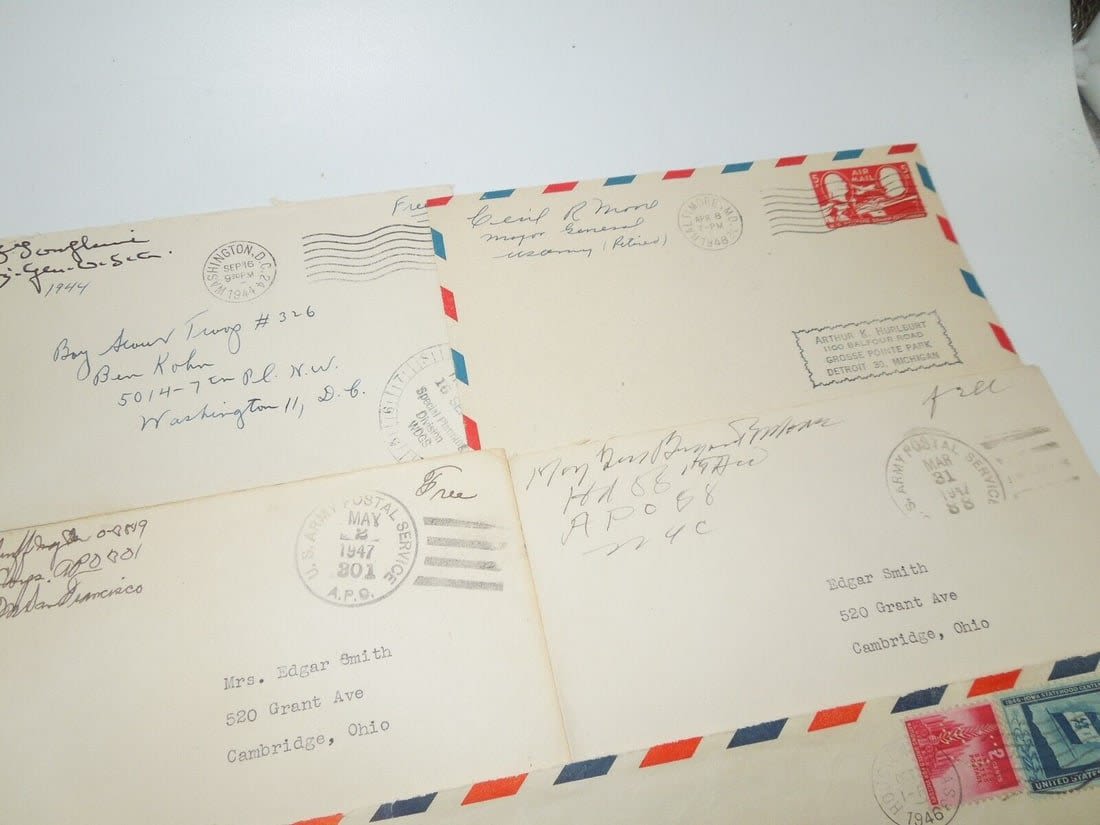 Free
Gen. U.S.A.
1944
WASHINGTON, D.C. 24
SEP 16
9 30 PM
1944
Boy Scout Troop # 326
Ben Kohn
5014-7th Pl. N.W.
Washington 11, D.C.
Special
Division
WDGS
Cecil R Moore
Major General
US Army (Retired)
BALTIMORE, MD.
APR 8
7-PM
1948
5¢
AIR
MAIL
5¢
ARTHUR K. HURLBURT
1100 BALFOUR ROAD
GROSSE POINTE PARK
DETROIT 30, MICHIGAN
0-8849
Corps. APO 201
San Francisco
U.S. ARMY POSTAL SERVICE
MAY
2
1947
201
A.P.O.
Free
Mrs. Edgar Smith
520 Grant Ave
Cambridge, Ohio
Maj Gen Bryant E Moore
Hq 88
APO 88
NYC
Free
U.S. ARMY POSTAL SERVICE
MAR
31
1947
Edgar Smith
520 Grant Ave
Cambridge, Ohio
1946
1846-IOWA STATEHOOD
UNITED STATES